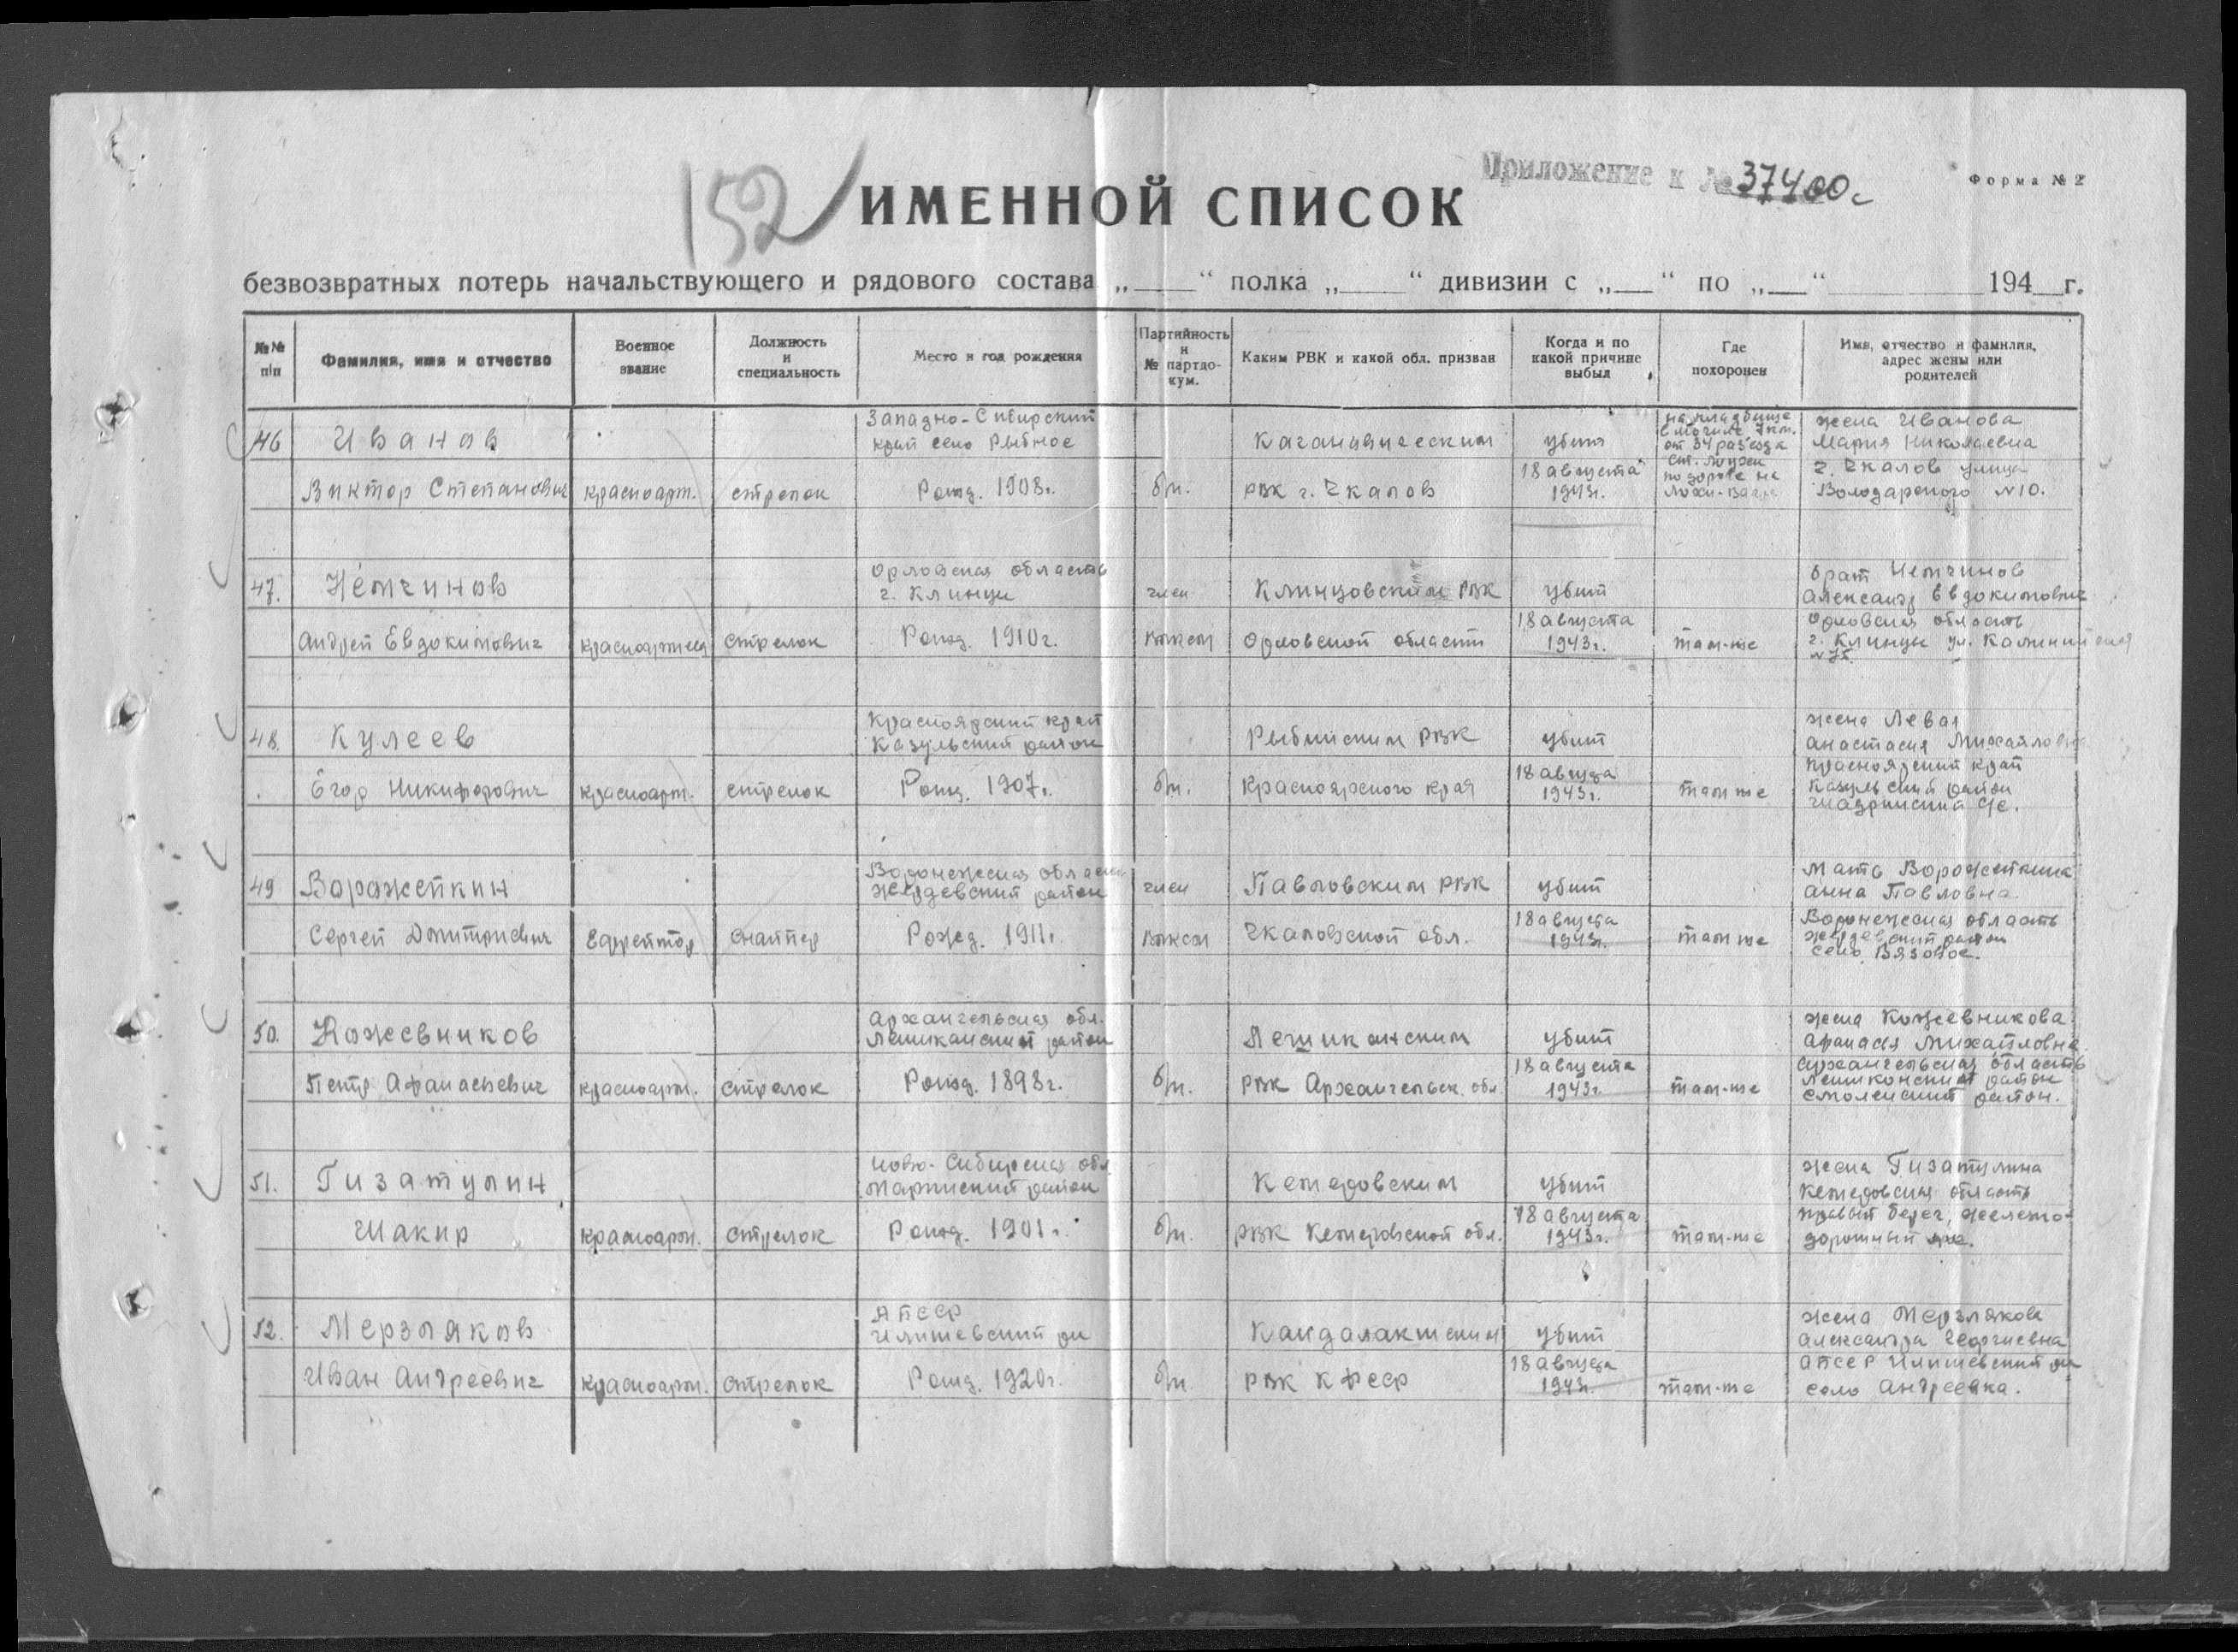 152
Приложение к № 37400с
Форма № 2
ИМЕННОЙ СПИСОК
безвозвратных потерь начальствующего и рядового состава „____“ полка „____“ дивизии с „__“ по „__“ ________ 194__г.
№№ п/п
Фамилия, имя и отчество
Военное звание
Должность и специальность
Место и год рождения
Партийность и № партдокум.
Каким РВК и какой обл. призван
Когда и по какой причине выбыл
Где похоронен
Имя, отчество и фамилия, адрес жены или родителей
46
Иванов
Виктор Степанович
красноарм.
стрелок
Западно-Сибирский
край село Рыбное
Рожд. 1908г.
б/п.
Кагановическим
РВК г. Чкалов
убит
18 августа
1943г.
на кладбище
в могиле 7 км.
от 34 раз'езда
ст. Лоухи
по дороге на
жена Иванова
Мария Николаевна
г. Чкалов улица
Володарского №10.
47.
Немчинов
Андрей Евдокимович
красноармеец
стрелок
Орловская область
г. Клинцы
Рожд. 1910г.
член
ВЛКСМ
Клинцовским РВК
Орловской области
убит
18 августа
1943г.
там-же
брат Немчинов
Александр Евдокимович
Орловская область
г. Клинцы ул. Калининская
48.
Кулеев
Егор Никифорович
красноарм.
стрелок
Красноярский край
Казульский район
Рожд. 1907г.
б/п.
Рыбинским РВК
Красноярского края
убит
18 августа
1943г.
там же
жена Левая
Анастасия Михайловна
Красноярский край
Казульский район
49
Ворожейкин
Сергей Дмитриевич
Ефрейтор
снайпер
Воронежская область
Жердевский район
Рожд. 1911г.
член
ВЛКСМ
Павловским РВК
Чкаловской обл.
убит
18 августа
1943г.
там же
Мать Ворожейкина
Анна Павловна.
Воронежская область
Жердевский район
село Вязовое.
50.
Кожевников
Петр Афанасьевич
красноарм.
стрелок
Архангельская обл.
Лешиканский район
Рожд. 1898г.
б/п.
Лешиканским
РВК Архангельск. обл.
убит
18 августа
1943г.
там-же
жена Кожевникова
Афанася Михайловна
Архангельская область
Лешконский район
Смоленский район.
51.
Гизатулин
Шакир
красноарм.
стрелок
Ново-Сибирская обл.
Рожд. 1901г.
б/п.
Кемеровским
РВК Кемеровской обл.
убит
18 августа
1943г.
там-же
жена Гизатулина
Кемеровская область
правый берег, железно-
дорожный
52.
Мерзляков
Иван Андреевич
красноарм.
стрелок
Илишевский рн
Рожд. 1920г.
б/п
Кандалакшским
РВК КФССР
убит
18 августа
1943г.
там-же
жена Мерзлякова
Александра Георгиевна
Илишевский рн
село Андреевка.